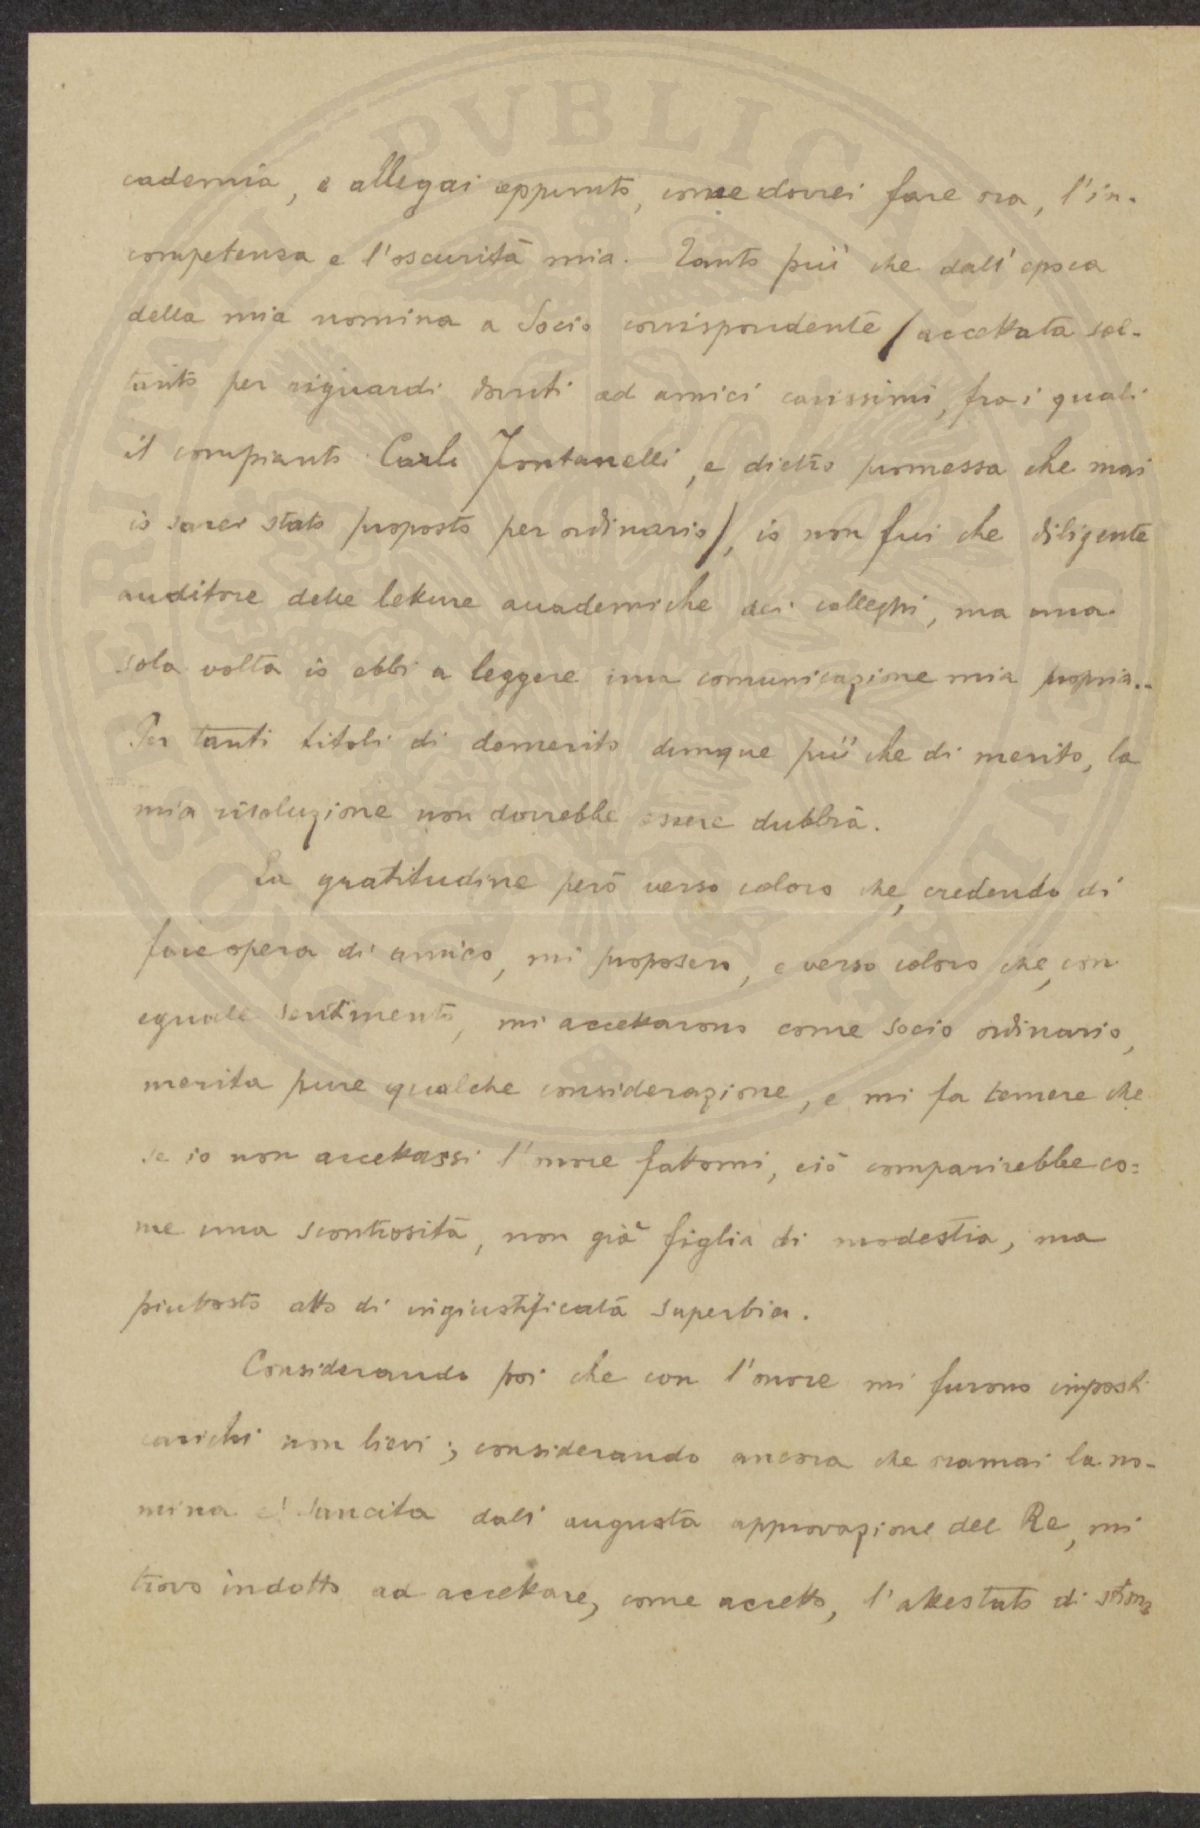 cademia, e allegai appunto, come dovrei fare ora, l'in-
competenza e l'oscurità mia. Tanto più che dall'epoca
della mia nomina a Socio corrispondente (accettata sol-
tanto per riguardi dovuti ad amici carissimi, fra i quali
il compianto Carlo Fontanelli, e dietro promessa che mai
io sarei stato proposto per ordinario), io non fui che diligente
auditore delle letture accademiche dei colleghi, ma una
sola volta io ebbi a leggere una comunicazione mia propria..
Per tanti titoli di demerito dunque più che di merito, la
mia risoluzione non dovrebbe essere dubbia.
La gratitudine però verso coloro che, credendo di
fare opera di amico, mi proposero, e verso coloro che, con
eguale sentimento, mi accettarono come socio ordinario,
merita pure qualche considerazione, e mi fa temere che
se io non accettassi l'onore fattomi, ciò comparirebbe co=
me una scontrosità, non già figlia di modestia, ma
piuttosto atto di ingiustificata superbia.
Considerando poi che con l'onore mi furono imposti
carichi non lievi; considerando ancora che oramai la no-
mina è sancita dall'augusta approvazione del Re, mi
trovo indotto ad accettare, come accetto, l'attestato di stima